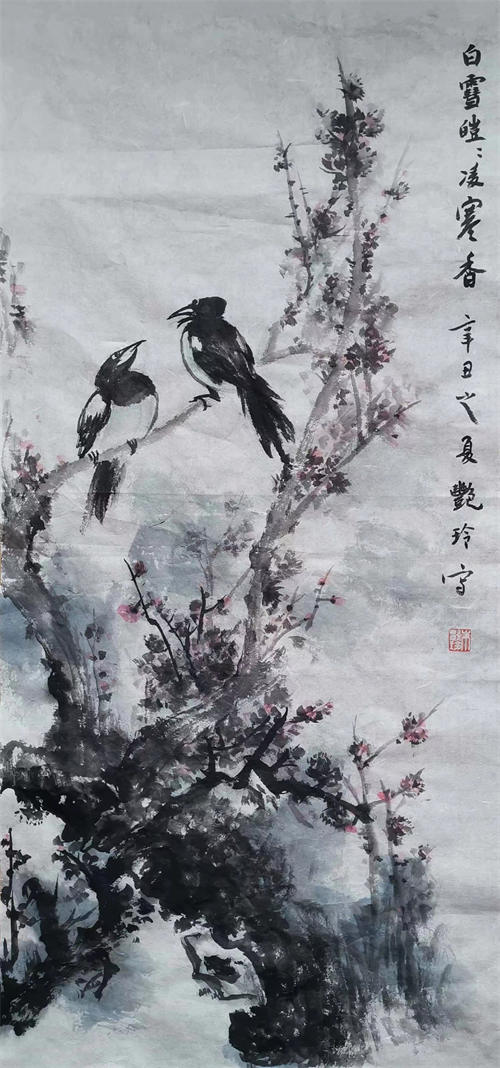 白雪皑〻凌寒香 辛丑之夏艷玲写